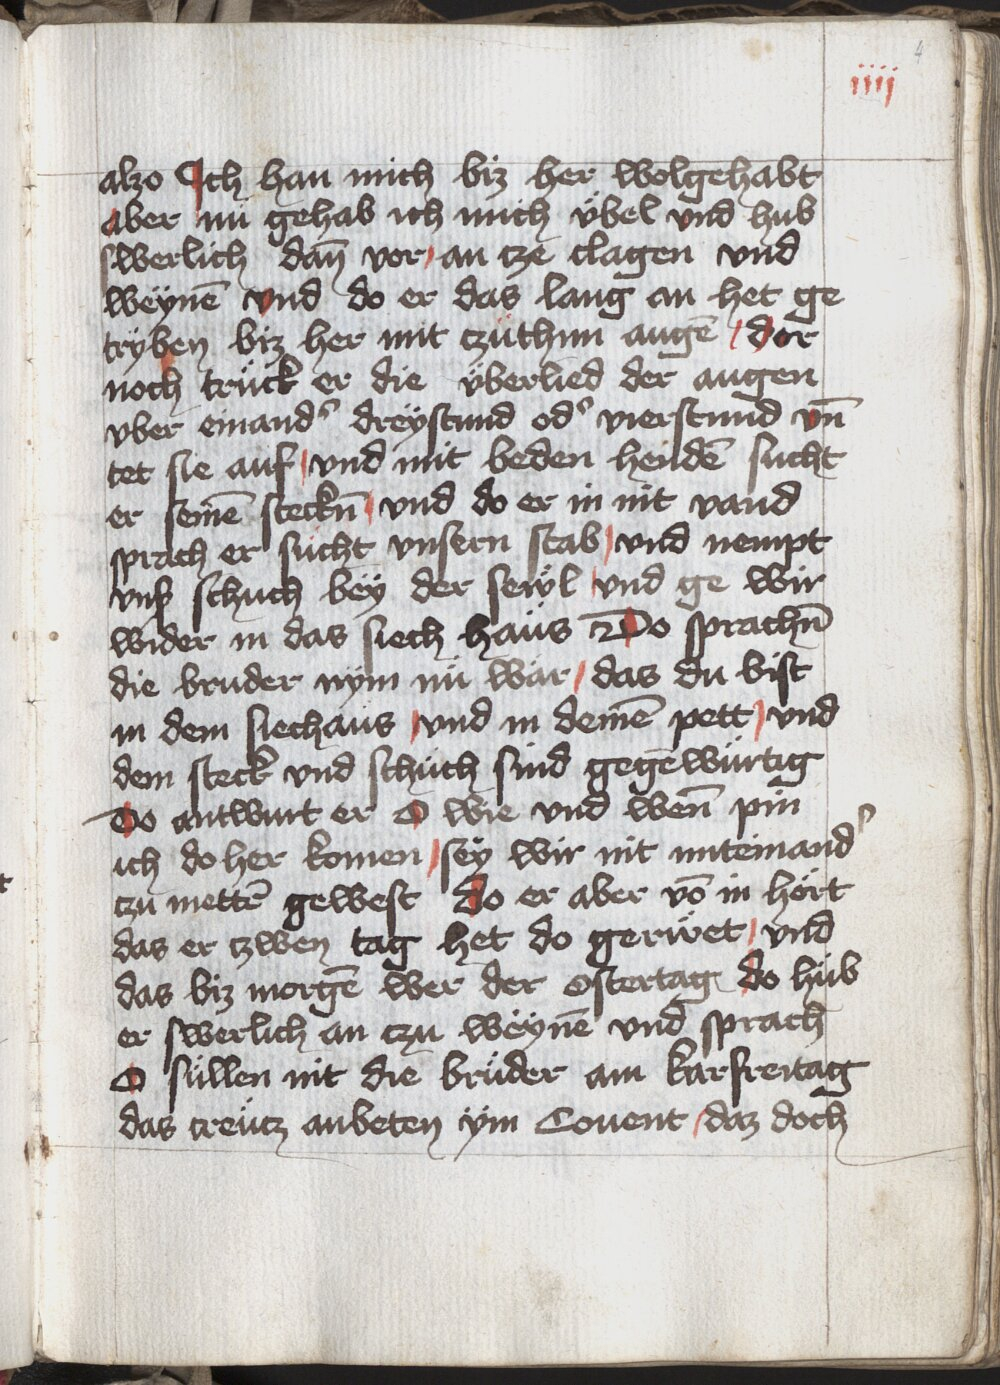 4
iiij
alzo Ich han mich biz her wolgehabt
aber nu gehab ich mich übel vnd hub
swerlich dan̄ vor / an cze clagen vnd
weÿnē vnd do er das lang an het ge
trÿben biz her mit czuthun augē / dor
noch trück er die überlied der augen
vber einandˢ dreÿstund odˢ vierstund vn̄
tet sie auf / vnd mit beden hendē sucht
er seinē steckn̄ / vnd do er in nit vand
sprach er sücht vnsern stab / vnd nempt
vnß schuch beÿ der sewl / vnd ge wir
wider in das siech haüs Do sprachn̄
die bruder nÿm nü war / das du bist
in dem siechaus / vnd in deinē pett / vnd
dem steck vnd schüch sind gegēwürtig
Do antwurt er O wie vnd wen̄ pin
ich do her komen / seÿ wir nit miteinandˢ
czu mettē gewest do er aber vō in hört
das er czwen tag het do gerüret / vnd
das biz morgē wer der ostertag do hüb
er swerlich an czu weÿnē vnd sprach
O süllen nit die brüder am karfreitag
das creücz anbeten ÿm Couent / daz doch